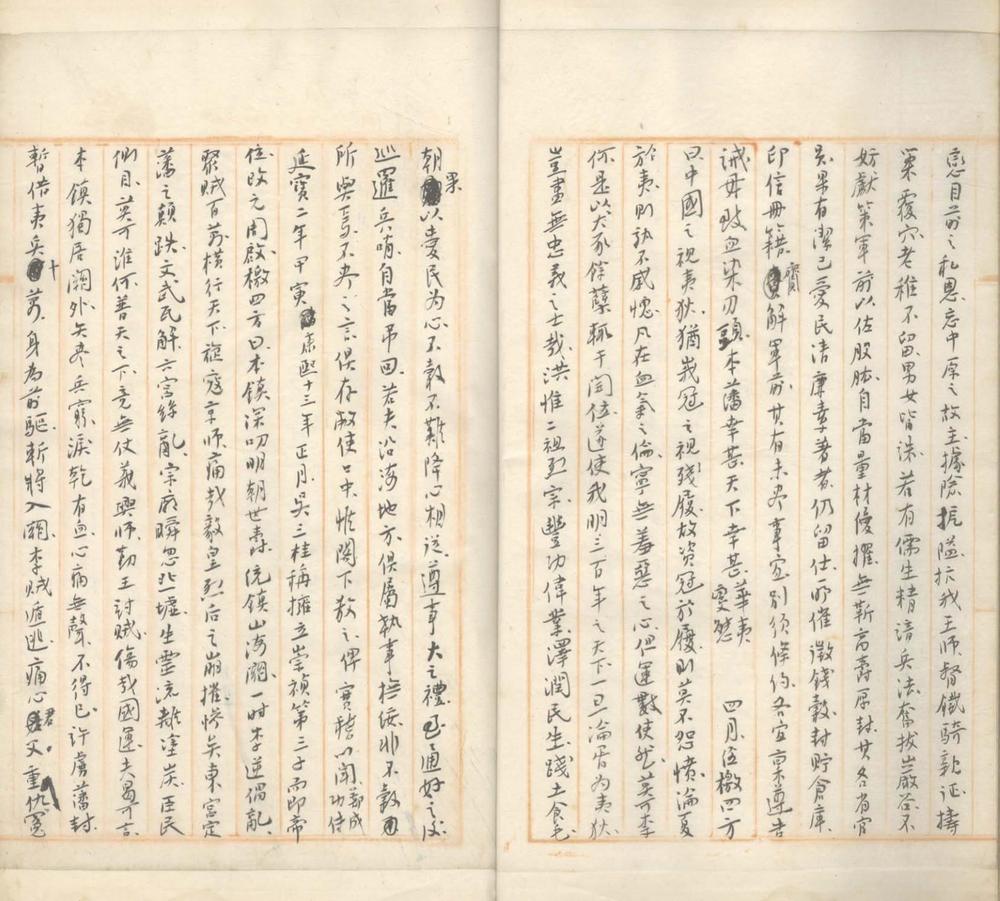 戀目前之私恩忘中原之故主據險扼隘抗我王师督鐵騎親征擣
巢覆穴老稚不留男女皆诛若有儒生精諳兵法奮拔巖谷不
妨獻策軍前以佐股肱自當量材優擢無靳高爵厚封其各省官
吳果有潔己愛民清廉素著者仍留仕所催徵錢穀封貯倉庫
印信冊籍齎解軍前其有未尽事宜别須條约各宜稟遵告
诫毋致血染刃頭本藩幸甚天下幸甚 華夷變態 四月任檄四方
曰中國之视夷狄猶峩冠之视残履故資冠於履则莫不怨愤淪夏
於夷则孰不感愧凡在血氣之倫寧無羞惡之心但運數使然莫可奈
何是以犬豕馀孽輒干闰位遂使我明三百年之天下一旦淪胥为夷狄
豈盡無忠義之士哉洪惟二祖烈宗豐功偉業澤潤民生踐土食毛
朝果以愛民为心不穀不難降心相從遵事大之禮通好之後
巡邏兵哨自當吊回若夫沿海地方俱屬執事撫绥非不穀
所與焉不尽之言俱存敝使口中惟阁下教之俾實稽以闻 鄭成功傳
延寶二年甲寅康熙十三年正月吳三桂稱擁立崇禎第三子而即帝
位改元周啟檄四方曰本鎮深叨明朝世爵统鎮山海關一时李逆倡亂
聚贼百萬横行天下旋寇京师痛哉毅皇烈后之崩摧惨矣東宫定
藩之颠跌文武瓦解六宫丝亂宗廟瞬忽丘墟生靈流離塗炭臣民
侧目莫可谁何普天之下竟無仗義興师勤王討贼傷哉國運夫曷可言
本鎮獨居關外矢尽兵窮淚乾有血心痛無聲不得已许虜藩封
暫借夷兵十萬身为前驅斬將入關李贼遁逃痛心君父重仇冤